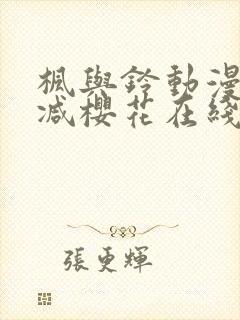 楓與鈴動漫
减櫻花在綫
張更輝